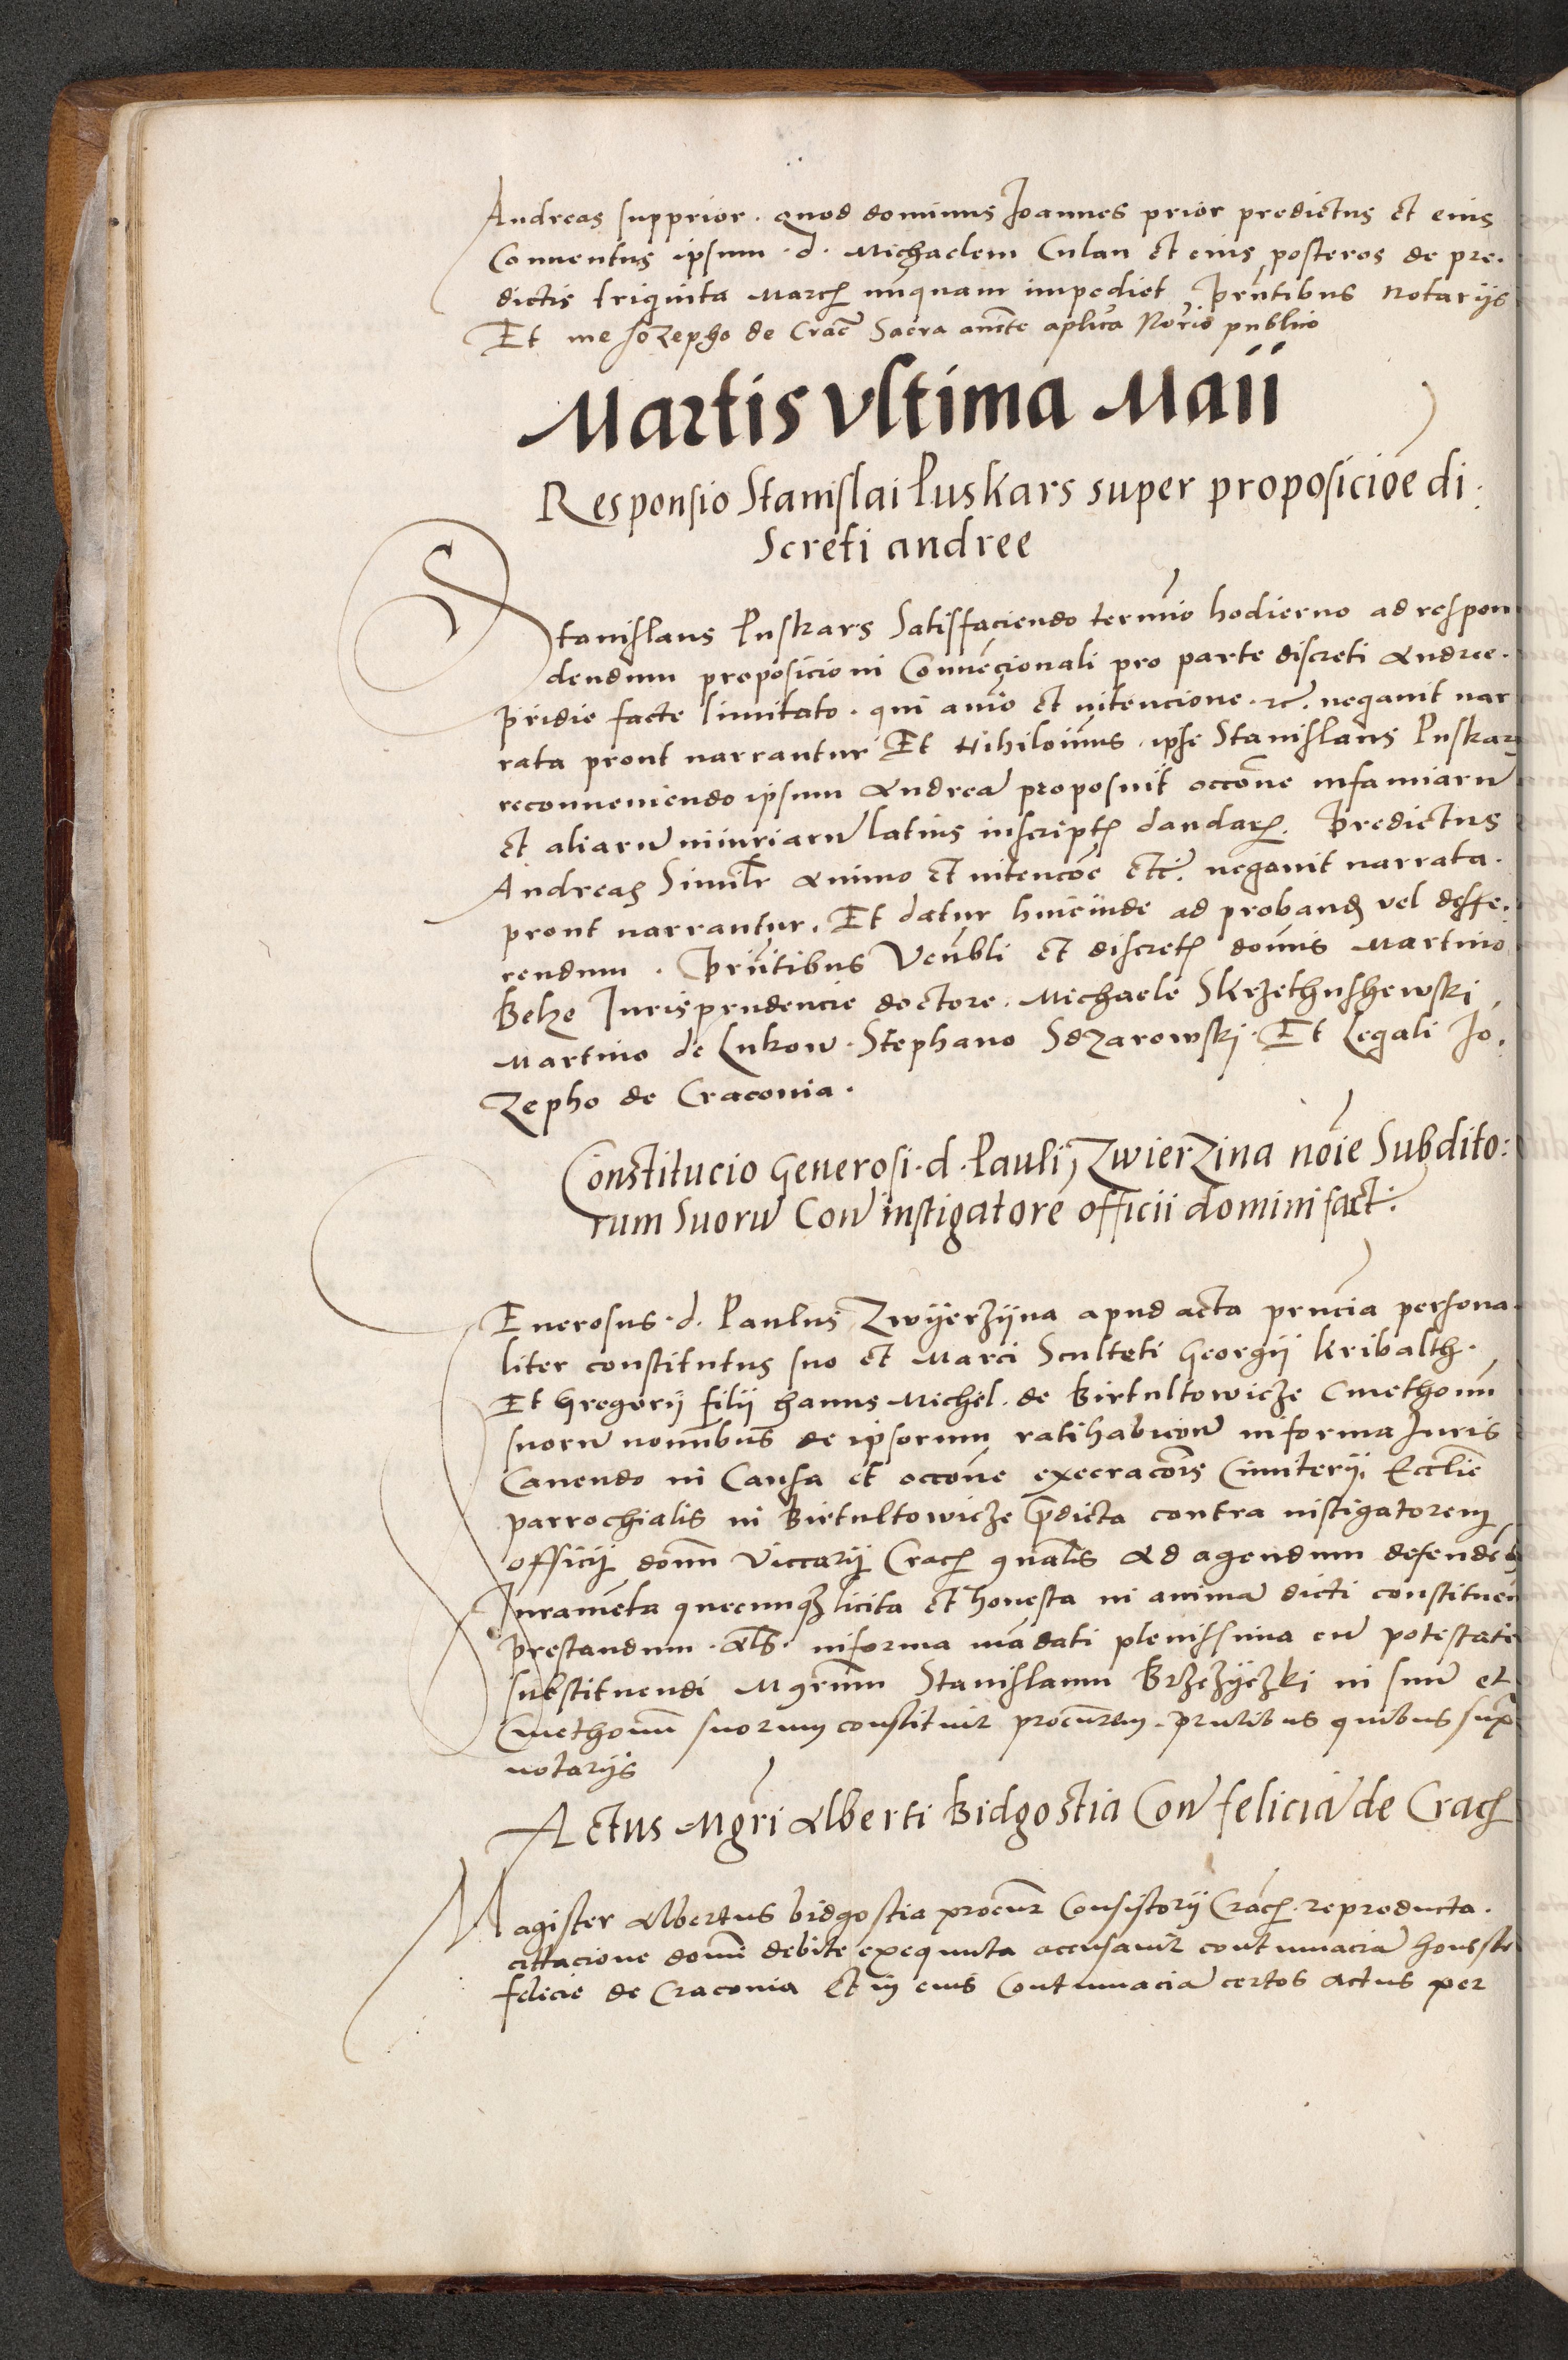 Andreas supprior. quod dominus Joannes prior predictus et eius
Conuentus ipsum .d. Michaelem Culan et eius posteros de pre.
dictis triginta March nūquam impediet Prñtibus Notarijs
Et me Jozepho de Crac̃ Sacra aucte aplica Norio publico
Martis vltima Maii
Responsio Stanislai Puskars super proposicioe di:
screti andree
Stanislaus Puskars Satisfaciendo termio hodierno ad respon
dendum proposicioni Conuēcionali pro parte discreti Andree.
pridie facte limitato. qui aīo et intencione. rc̃. negauit nar
rata prout narrantur Et Nihiloīnus ipse Stanislaus Puskars
reconueniendo ipsum Andreā proposuit occōne infamiarū
et aliarū iniuriarū latius in scriptꝭ dandarꝭ. Predictus
Andreas Similr animo et intencōe etc̃. negauit narrata.
prout narrantur. Et datur hincinde ad proband vel deffe.
rendum. Prñtibus Venbli et discretꝭ dominis Martino
Belze Jurisprudencie doctore. Michaele Skrzethushewski,
Martino de Lukow. Stephano Sdzarowskj. Et Legali Jo.
zepho de Craconia.
Constitucio Generosi .d. Pauli Zwierzina noīe Subdito:
rum Suorū Con instigatore officii domini fact:
Enerosus .d. Paulus Zwÿerzÿna apud acta prñcia persona.
liter constitutus suo et Marci Sculteti Georgij Kribalth.
Et Gregorij filij hanus Michel. de Birtultowicze Cmethonū
suorū nominibus de ipsorum ratihabicioū in forma Juris
Cauendo in Causa et occōne execracōis Cimiterij Ecclīe
parrochialis in Birtultowicze p̄dicta contra instigatorem
officij domī Viccarij Crach gnalis Ad agendum defendēd
Juramēta quecunqꝫ licita et honesta in animā dicti constituen
prestandum. als. in forma mādati plenissima cū potestate
substituendi Mgrum Stanislaum Brzezÿczki in suū et
Cmethonū suorum constituit procurem. prñtibus quibus supra
notarijs
Actus Mgri Alberti Bidgostia Con feliciā de Crach
Magister Albertus bidgostia procur Consistorij Crach. reproducta.
cittacione domi debite exequuta accusauit contumaciā honeste
felecie de Craconia Et in eius Contumaciā certos actus per